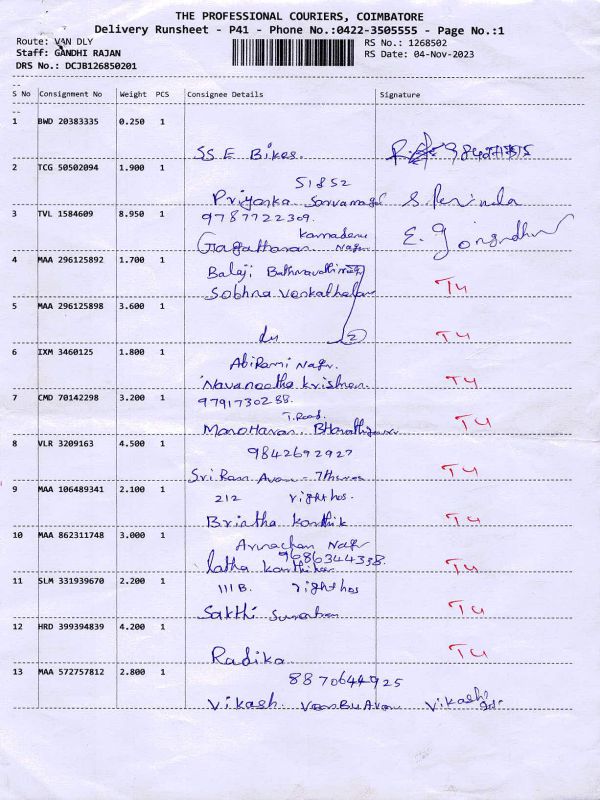 THE PROFESSIONAL COURIERS, COIMBATORE
Delivery Runsheet - P41 - Phone No.:0422-3505555 - Page No.:1
Route: VAN DLY
Staff: GANDHI RAJAN
DRS No.: DCJB126850201
RS No.: 1268502
RS Date: 04-Nov-2023
S No Consignment No Weight PCS Consignee Details Signature
1 BWD 20383335 0.250 1
SS E Bikes.
2 TCG 50502094 1.900 1
51852
Priyanka
3 TVL 1584609 8.950 1
9787722309.
Nagar
4 MAA 296125892 1.700 1
Balaji
Sobhna Venkathalam T4
5 MAA 296125898 3.600 1
du 2 T4
6 IXM 3460125 1.800 1
Abirami Nagr.
Navaneetha Krishnan. T4
7 CMD 70142298 3.200 1
9791730288.
T. Road.
Manoharan T4
8 VLR 3209163 4.500 1
9842692927
Sri Ram T4
9 MAA 106489341 2.100 1
212 right hos.
Brintha Karthik T4
10 MAA 862311748 3.000 1
Nagr
9686344338.
latha T4
11 SLM 331939670 2.200 1
111 B. right hos
Sakthi T4
12 HRD 399394839 4.200 1
Radika T4
13 MAA 572757812 2.800 1
8870644925
Vikash. Vikash